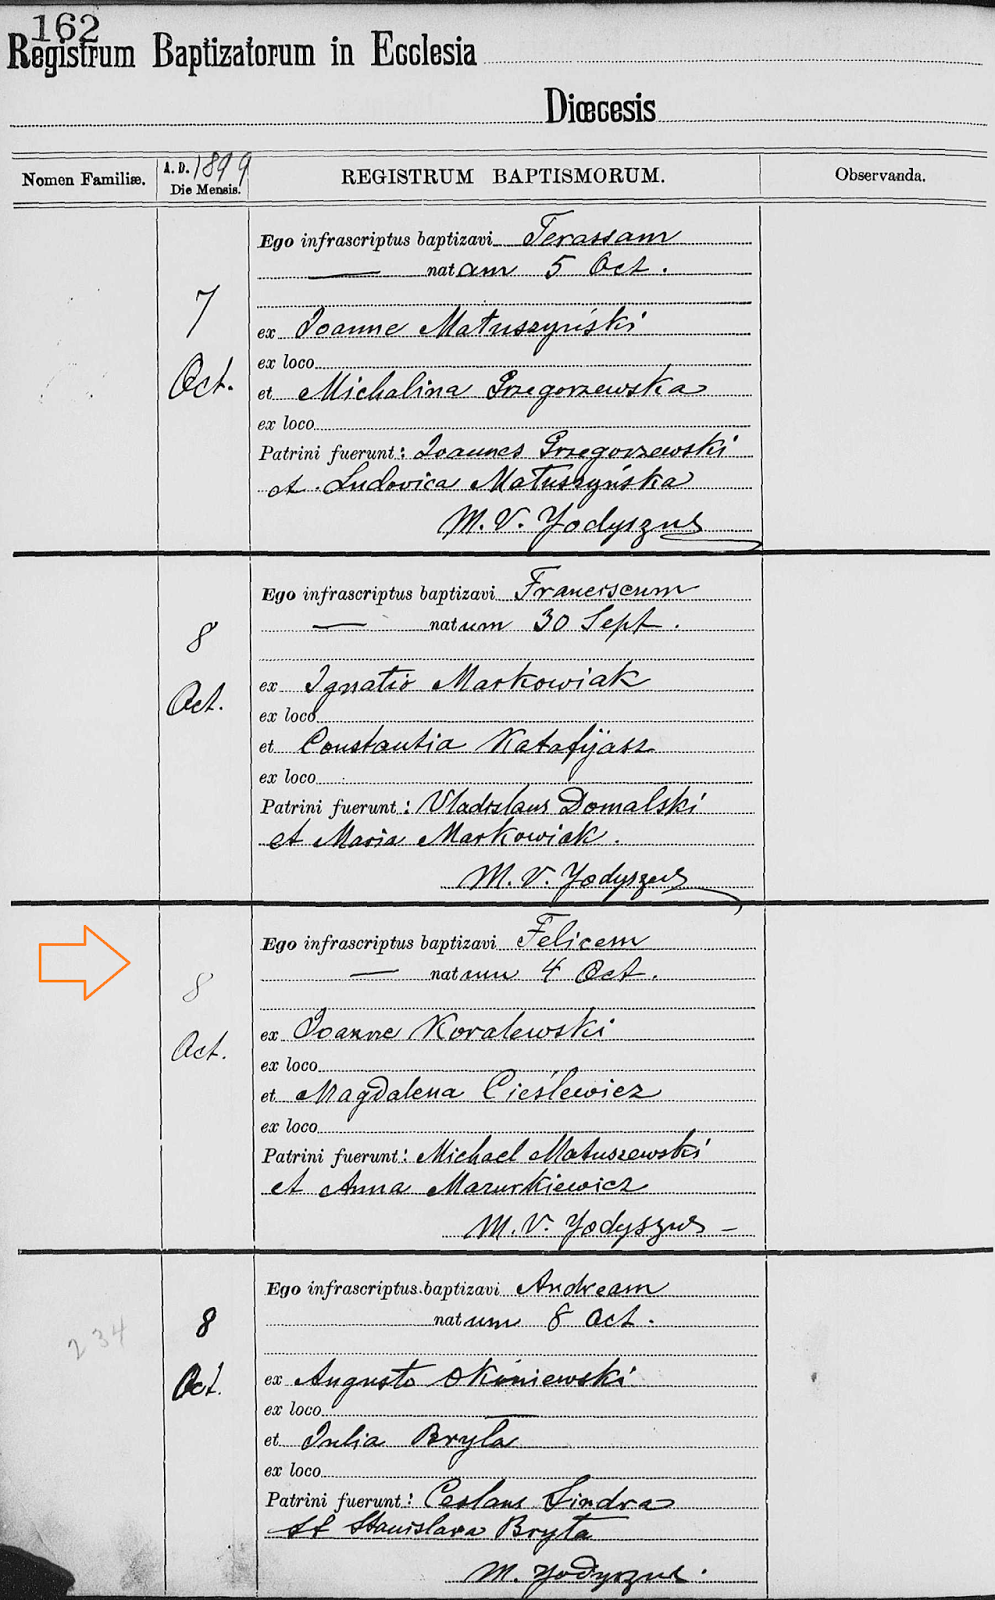 162
Registrum Baptizatorum in Ecclesia
Diœcesis
Nomen Familiæ.
A. D. 1899
Die Mensis.
REGISTRUM BAPTISMORUM.
Observanda.
7
Oct.
Ego infrascriptus baptizavi Terassam
— natam 5 Oct.
ex Joanne Matuszyński
ex loco
et Michalina Grzegorzewska
ex loco
Patrini fuerunt: Joannes Grzegorzewski
et Ludovica Matuszyńska
M. V. Yodyszus
8
Oct.
Ego infrascriptus baptizavi Franciscum
— natum 30 Sept.
ex Ignatio Markowiak
ex loco
et Constantia Katafijasz
ex loco
Patrini fuerunt: Vladislaus Domalski
et Maria Markowiak.
M. V. Yodyszus
8
Oct.
Ego infrascriptus baptizavi Felicem
— natum 4 Oct.
ex Joanne Kovalewski
ex loco
et Magdalena Cieślewicz
ex loco
Patrini fuerunt: Michael Matuszewski
et Anna Mazurkiewicz
M. V. Yodyszus –
234
8
Oct.
Ego infrascriptus baptizavi Andream
natum 8 Oct.
ex Augusto Okoniewski
ex loco
et Julia Bryla
ex loco
Patrini fuerunt: Ceslaus Sindra
et Stanislava Bryła
M. Yodyszus.